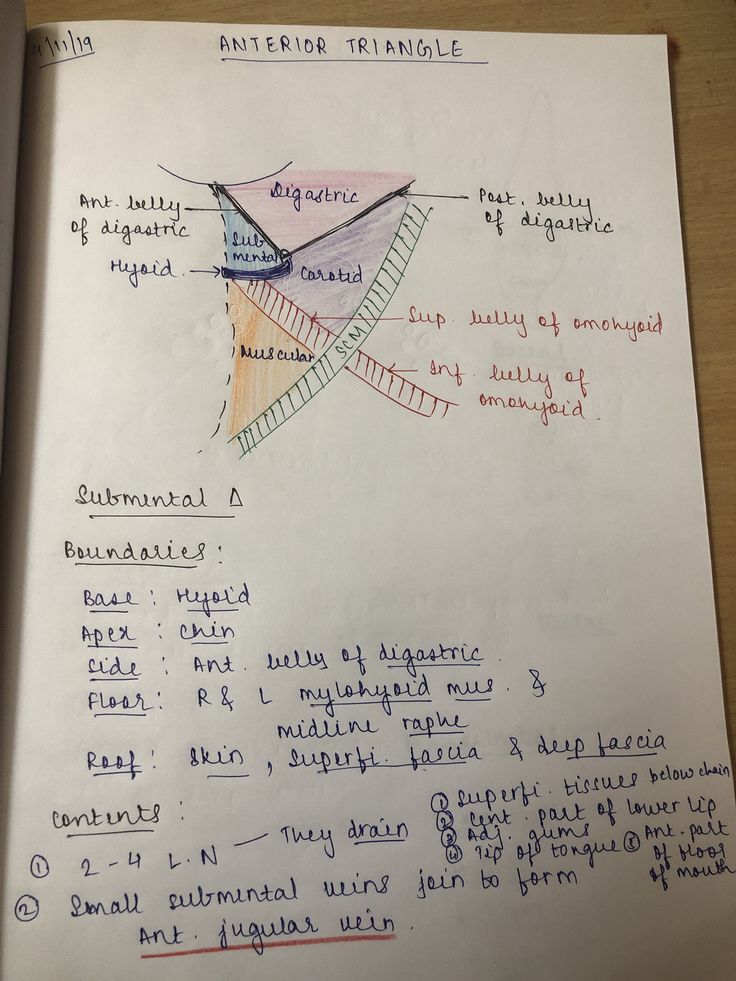 4/11/19
ANTERIOR TRIANGLE
Digastric
Ant. belly
of digastric
Post. belly
of digastric
Sub
mental
Hyoid
Carotid
Sup. belly of omohyoid
SCM
Muscular
Inf. belly of
omohyoid
Submental Δ
Boundaries :
Base : Hyoid
Apex : chin
Side : Ant. belly of digastric
Floor : R & L mylohyoid mus. &
midline raphe
Roof : Skin, Superfi. fascia & deep fascia
Contents :
① 2-4 L.N — They drain
① Superfi. tissues below chain
② Cent. part of lower lip
③ Adj. gums
④ Tip of tongue
⑤ Ant. part
of floor
of mouth
② Small submental veins join to form
Ant. jugular vein.